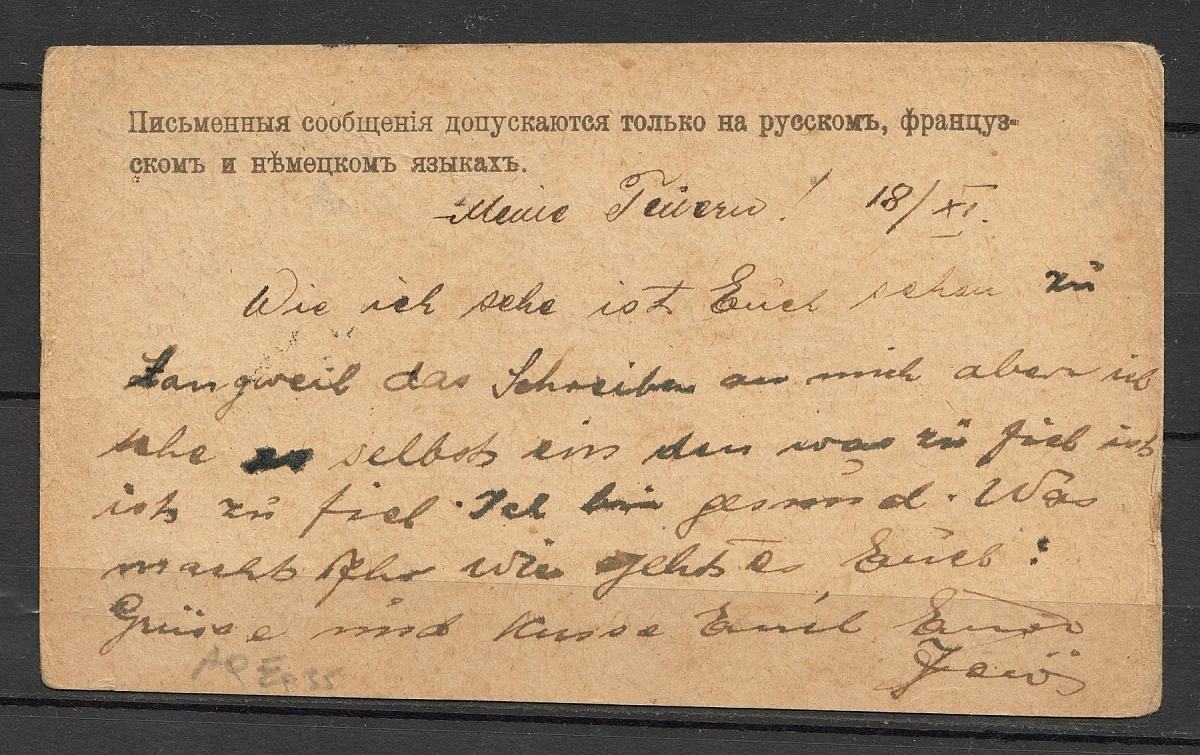 Письменныя сообщенія допускаются только на русскомъ, француз-
скомъ и нѣмецкомъ языкахъ.
Meine Teuern! 18/XI.
Wie ich sehe ist Euch schon zu
Langweil das Schreiben an mich aber ich
sehe es selbst ein den was zu fiel ist
ist zu fiel. Ich bin gesund. Was
macht Ihr wie geht es Euch?
Grüsse und Kusse Euch Euer